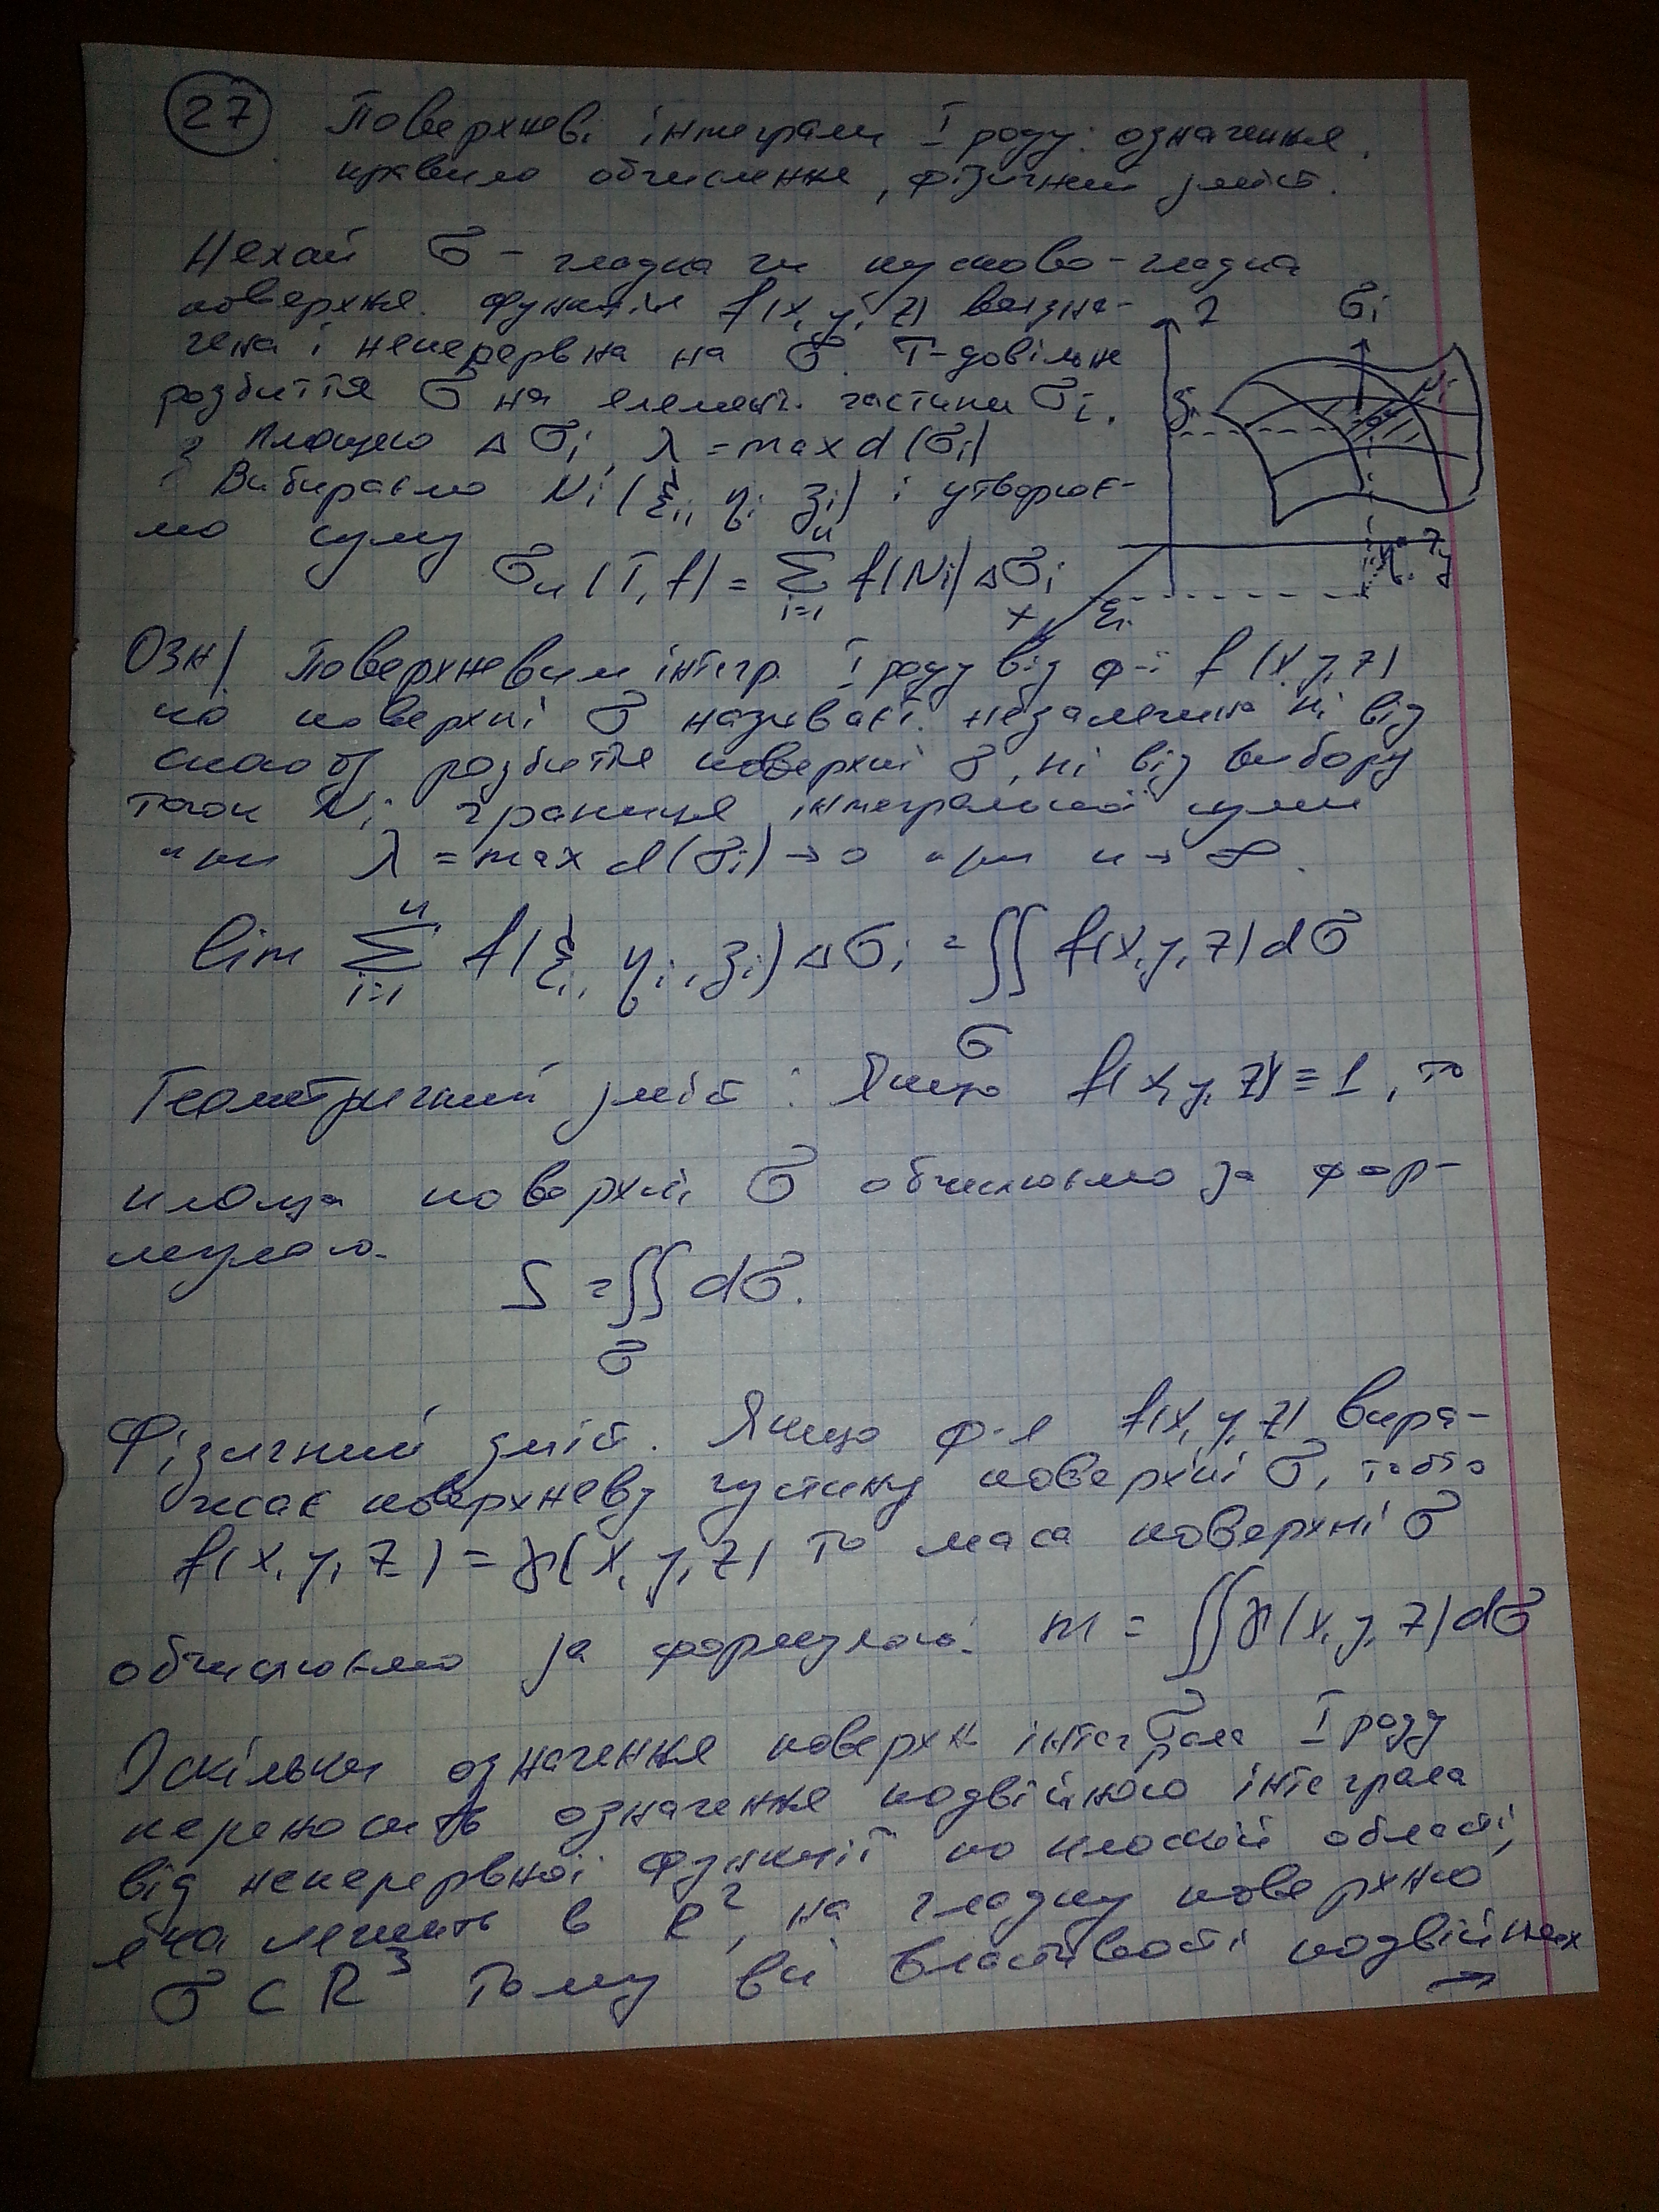 27 Поверхневі інтеграли I роду: означення,
правило обчислення, фізичний зміст.
Нехай σ - гладка чи кусково-гладка
поверхня. Функція f(x, y, z) визна-
чена і неперервна на σ. T-довільне
розбиття σ на елемент. частини σi,
з площею Δσi, λ = max d(σi)
Вибираємо Ni(ξi, ηi, ζi) і утворює-
мо суму
σn(T, f) = Σ f(Ni)Δσi
n
i=1
z σi
Ni
ζi
ηi y
x ξi
Озн/ Поверхневим інтегр. I роду від ф-ї f(x, y, z)
по поверхні σ називаєт. незалежна ні від
способу розбиття поверхні σ, ні від вибору
точок Ni границя інтегральної суми
при λ = max d(σi) → 0 при n → ∞.
lim Σ f(ξi, ηi, ζi)Δσi = ∬ f(x, y, z)dσ
n
i=1
σ
Геометричний зміст: Якщо f(x, y, z) ≡ 1, то
площа поверхні σ обчислюємо за фор-
мулою.
S = ∬ dσ.
σ
Фізичний зміст. Якщо ф-я f(x, y, z) вира-
жає поверхневу густину поверхні σ, тобто
f(x, y, z) = γ(x, y, z) то маса поверхні σ
обчислюємо за формулою: m = ∬ γ(x, y, z)dσ
σ
Оскільки означення поверхн інтеграла I роду
переносить означення подвійного інтеграла
від неперервної функції по плоскій області,
яка лежить в R², на гладку поверхню
σ ⊂ R³ тому всі властивості подвійних
→